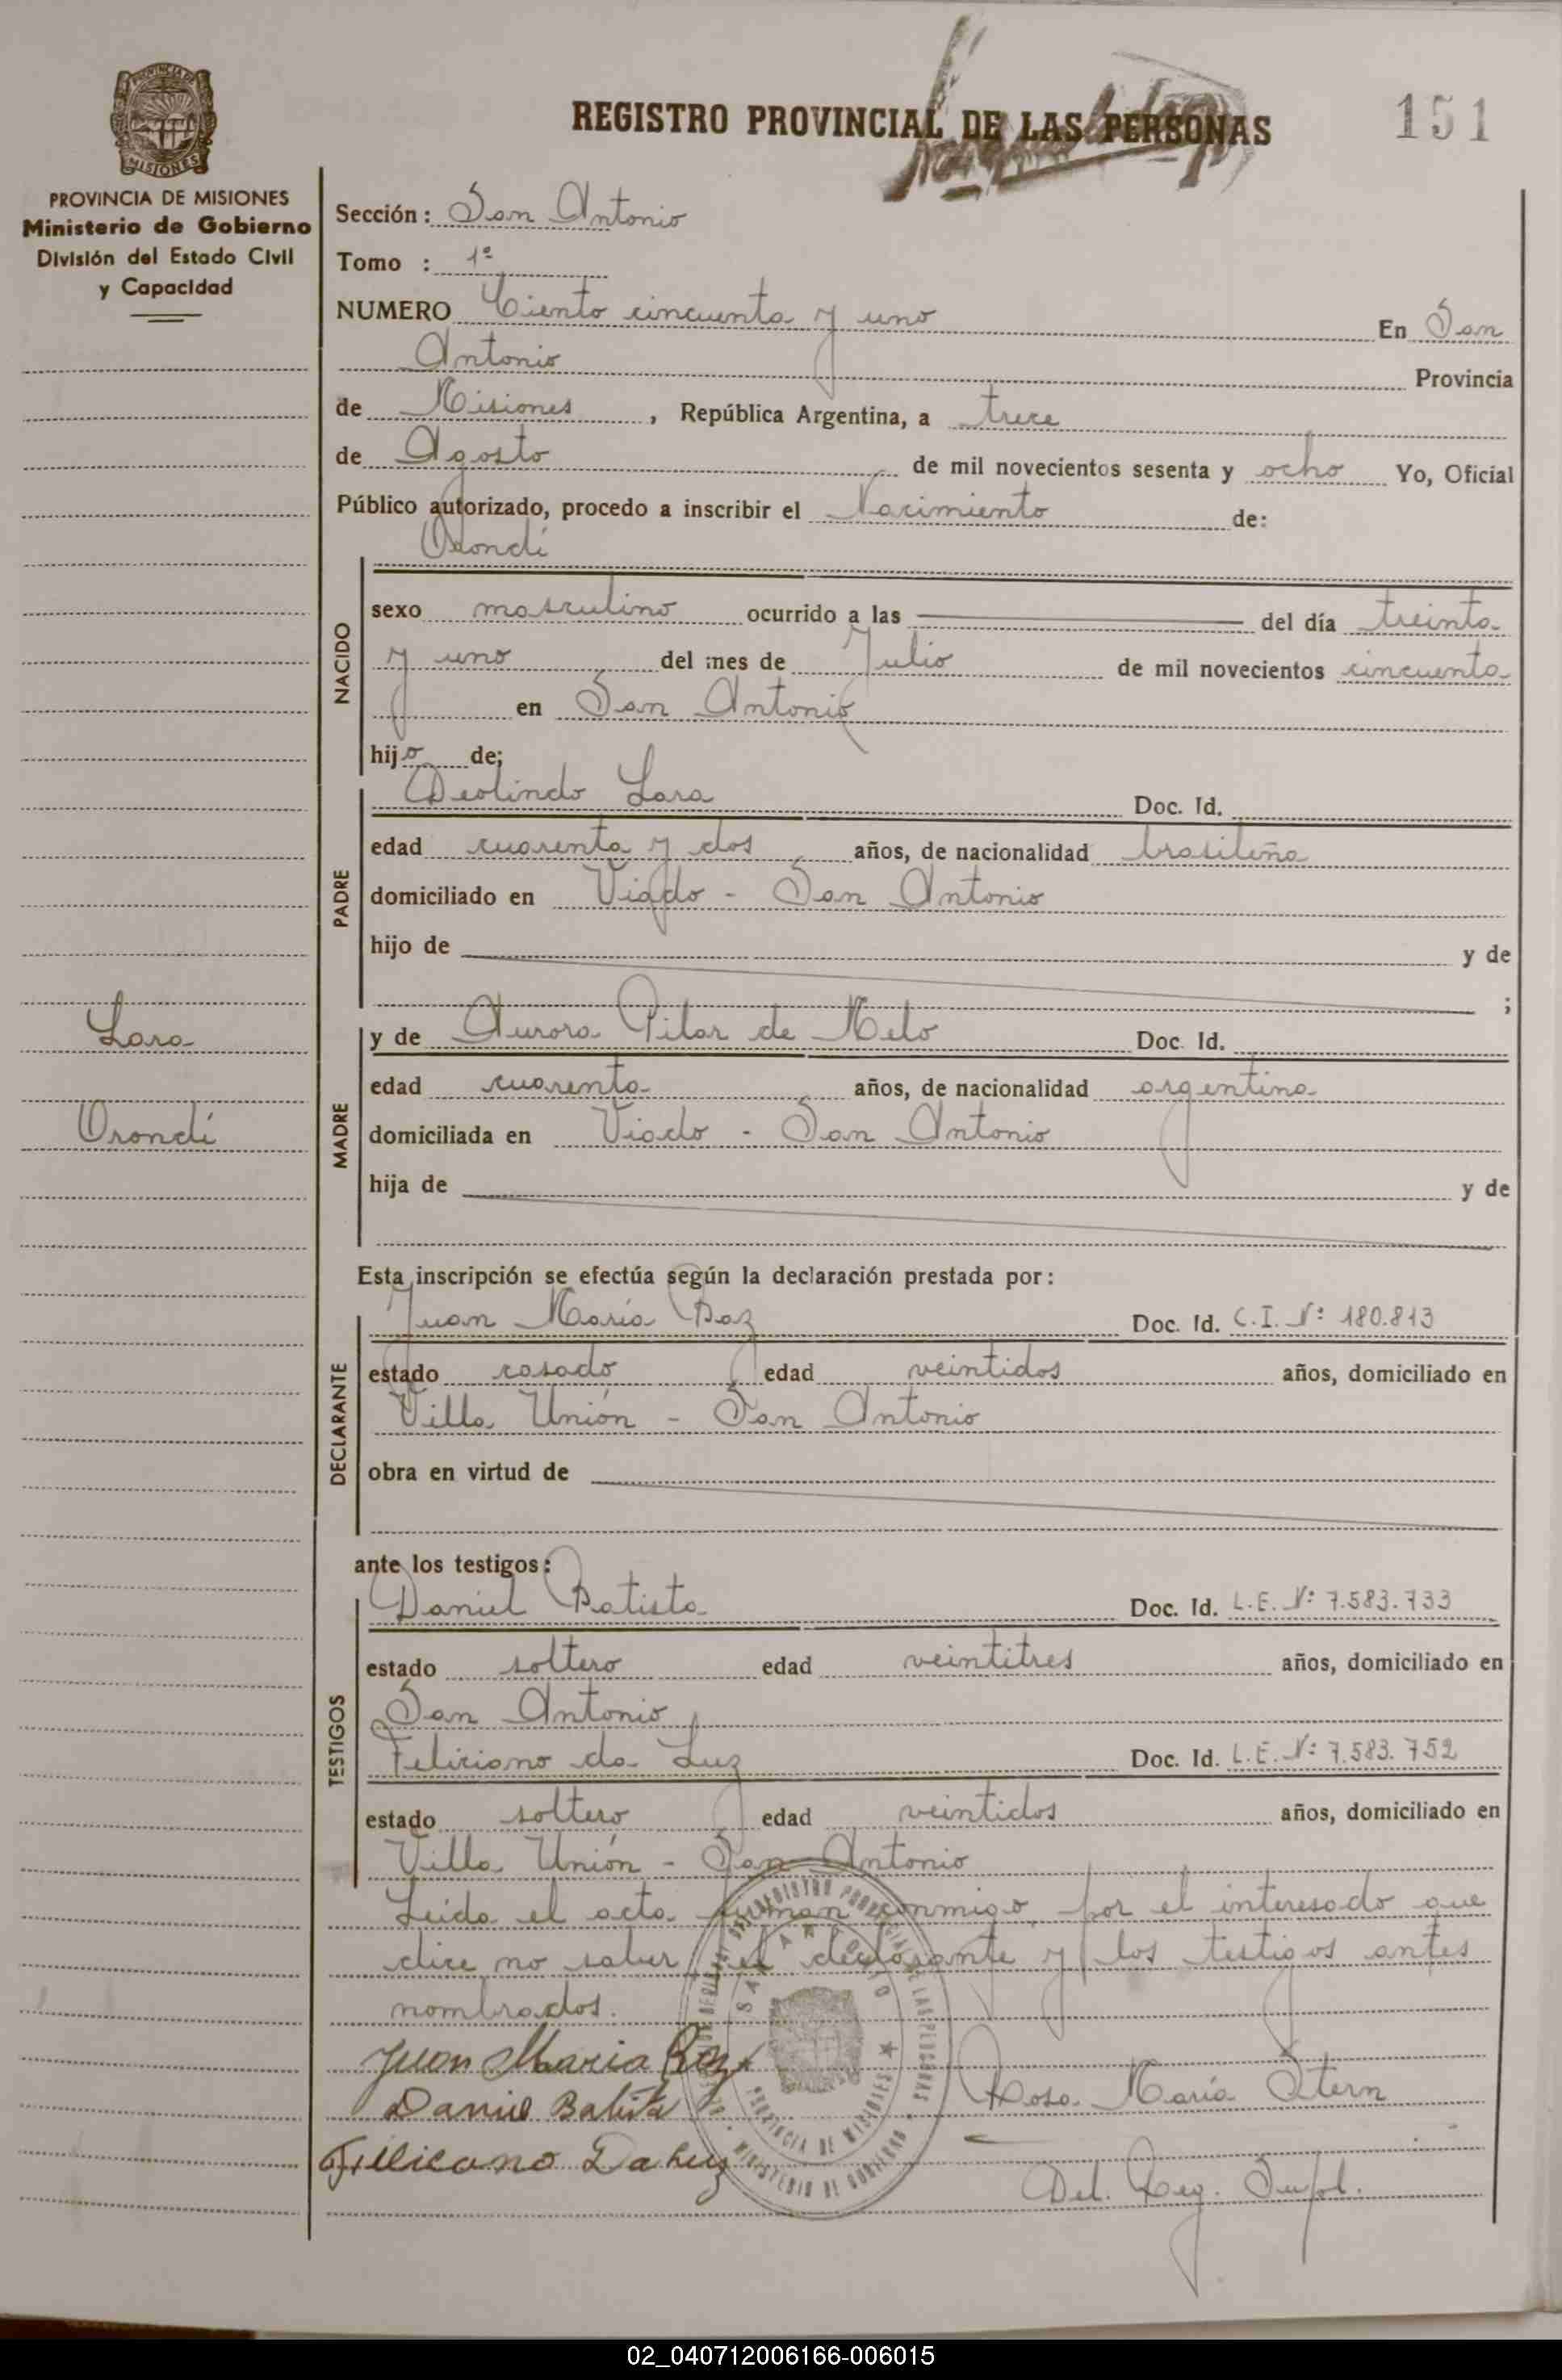 REGISTRO PROVINCIAL DE LAS PERSONAS
151
PROVINCIA DE MISIONES
Ministerio de Gobierno
División del Estado Civil
y Capacidad
Sección: San Antonio
Tomo : 1º
NUMERO Ciento cincuenta y uno En San
Antonio Provincia
de Misiones, República Argentina, a trece
de Agosto de mil novecientos sesenta y ocho Yo, Oficial
Público autorizado, procedo a inscribir el Nacimiento de:
Orondi
NACIDO
sexo masculino ocurrido a las del día treinta
y uno del mes de Julio de mil novecientos cincuenta
y en San Antonio
hijo de;
PADRE
Deolindo Lara Doc. Id.
edad cuarenta y dos años, de nacionalidad brasileña
domiciliado en Viado - San Antonio
hijo de y de
;
Lara
Orondi
MADRE
y de Aurora Pilar de Melo Doc. Id.
edad cuarenta años, de nacionalidad argentina
domiciliada en Viado - San Antonio
hija de y de
Esta inscripción se efectúa según la declaración prestada por:
DECLARANTE
Juan María Doc. Id. C.I. Nº 180.813
estado casado edad veintidos años, domiciliado en
Villa Unión - San Antonio
obra en virtud de
ante los testigos:
TESTIGOS
Daniel Batista Doc. Id. L.E. Nº 7.583.733
estado soltero edad veintitres años, domiciliado en
San Antonio
Feliciano da Luz Doc. Id. L.E. Nº 7.583.752
estado soltero edad veintidos años, domiciliado en
Villa Unión - San Antonio
Leida el acta firman conmigo, por el interesado que
dice no saber, el declarante y los testigos antes
nombrados.
Juan Maria
Daniel Batista
Feliciano Da Luz
Rosa María Stern
Del. Reg. Supl.
REGISTRO PROVINCIAL DE LAS PERSONAS
SAN ANTONIO
PROVINCIA DE MISIONES
MINISTERIO DE GOBIERNO
02_040712006166-006015